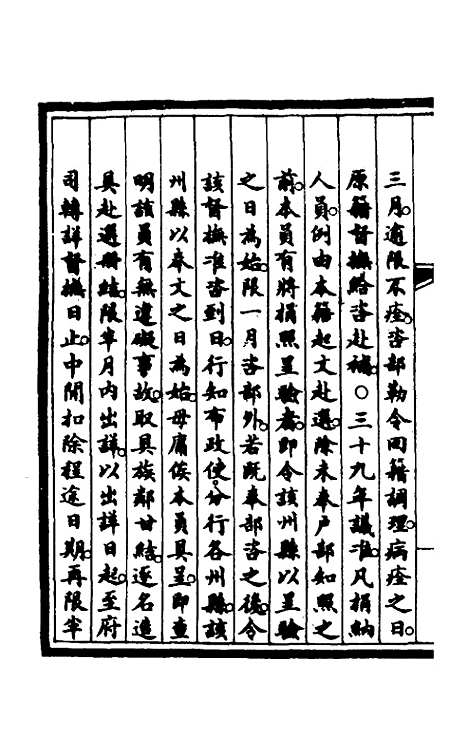 三月逾限不痊咨部勒令回籍調理病痊之日
原籍督撫給咨赴補○三十九年議准凡捐納
人員例由本籍起文赴選除未奉戶部知照之
前本員有將捐照呈驗者即令該州縣以呈驗
之日為始限一月咨部外若既奉部咨之後令
該督撫准咨到日行知布政使分行各州縣該
州縣以奉文之日為始毋庸俟本員具呈即查
明該員有無違礙事故取具族鄰甘結逐名造
具赴選冊結限半月內出詳以出詳日起至府
司轉詳督撫日止中間扣除程途日期再限半